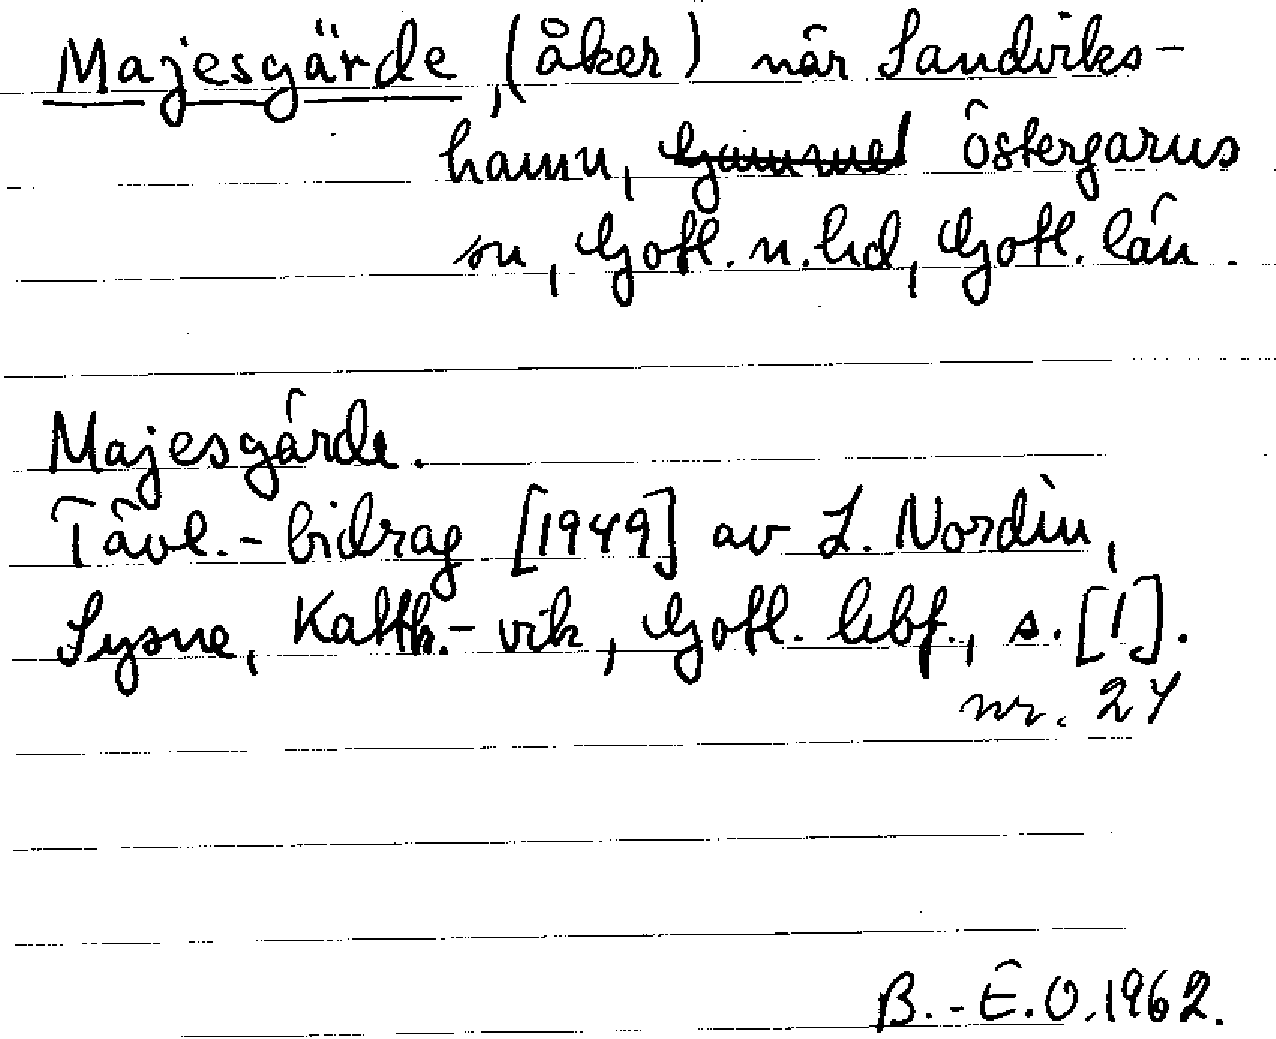 Majesgärde, (åker) när Sandviks-
hamn, Gammel Östergarns
sn, Gotl. n. hd, Gotl. län.
Majesgärde.
Tävl.-bidrag [1949] av L. Nordin,
Sysne, Katth.-vik, Gotl. lbf., s. [1].
nr. 24
B.-E.O. 1962.